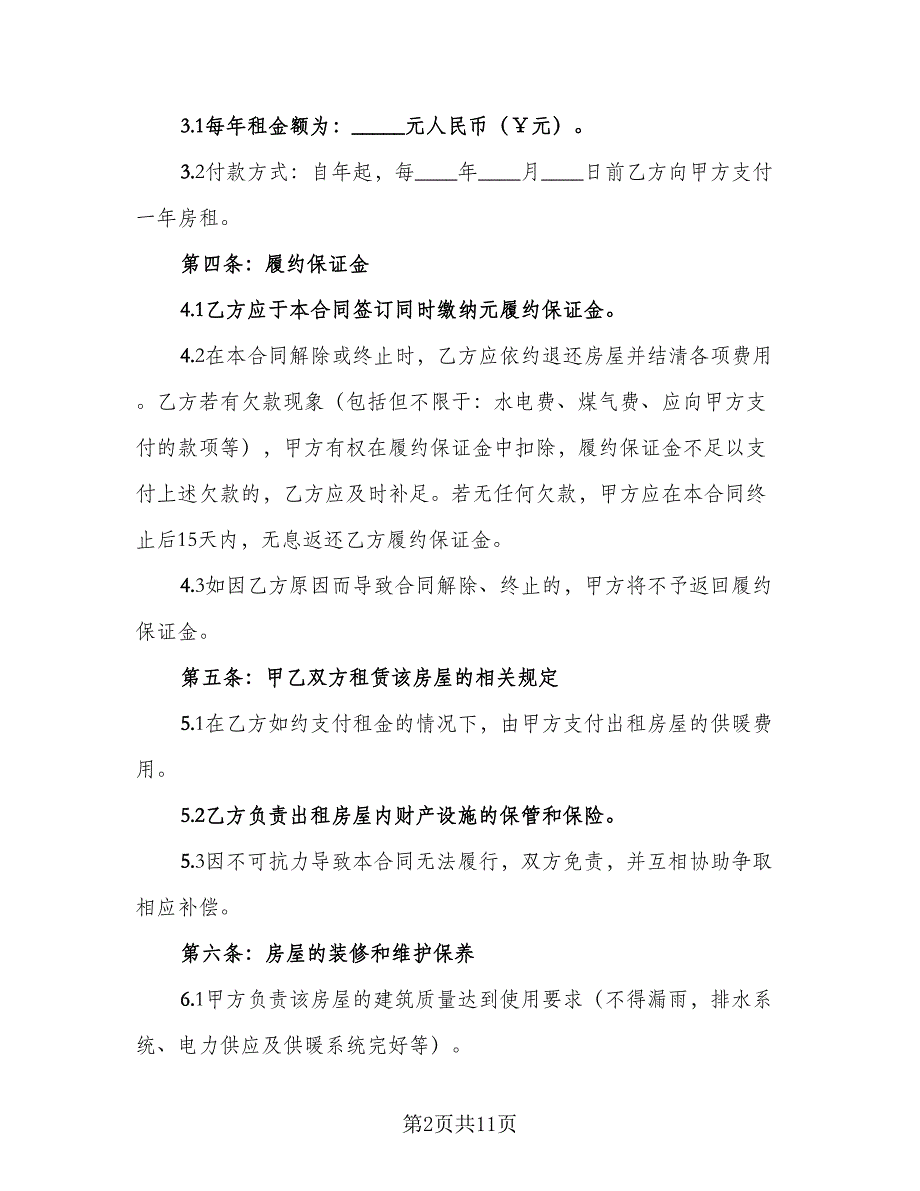 3.1每年租金额为：_____元人民币（￥元）。
3.2付款方式：自年起，每____年____月____日前乙方向甲方支付
一年房租。
第四条：履约保证金
4.1乙方应于本合同签订同时缴纳元履约保证金。
4.2在本合同解除或终止时，乙方应依约退还房屋并结清各项费用
。乙方若有欠款现象（包括但不限于：水电费、煤气费、应向甲方支
付的款项等），甲方有权在履约保证金中扣除，履约保证金不足以支
付上述欠款的，乙方应及时补足。若无任何欠款，甲方应在本合同终
止后15天内，无息返还乙方履约保证金。
4.3如因乙方原因而导致合同解除、终止的，甲方将不予返回履约
保证金。
第五条：甲乙双方租赁该房屋的相关规定
5.1在乙方如约支付租金的情况下，由甲方支付出租房屋的供暖费
用。
5.2乙方负责出租房屋内财产设施的保管和保险。
5.3因不可抗力导致本合同无法履行，双方免责，并互相协助争取
相应补偿。
第六条：房屋的装修和维护保养
6.1甲方负责该房屋的建筑质量达到使用要求（不得漏雨，排水系
统、电力供应及供暖系统完好等）。
第2页共11页